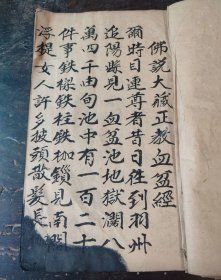 佛説大藏正教血盆經
爾時目連尊者昔日往到羽州
追陽縣見一血盆池地獄濶八
萬四千由旬池中有一百二十
件事鉄樑鉄柱鉄枷鎖見南閻
浮提女人許多披頭散髮長